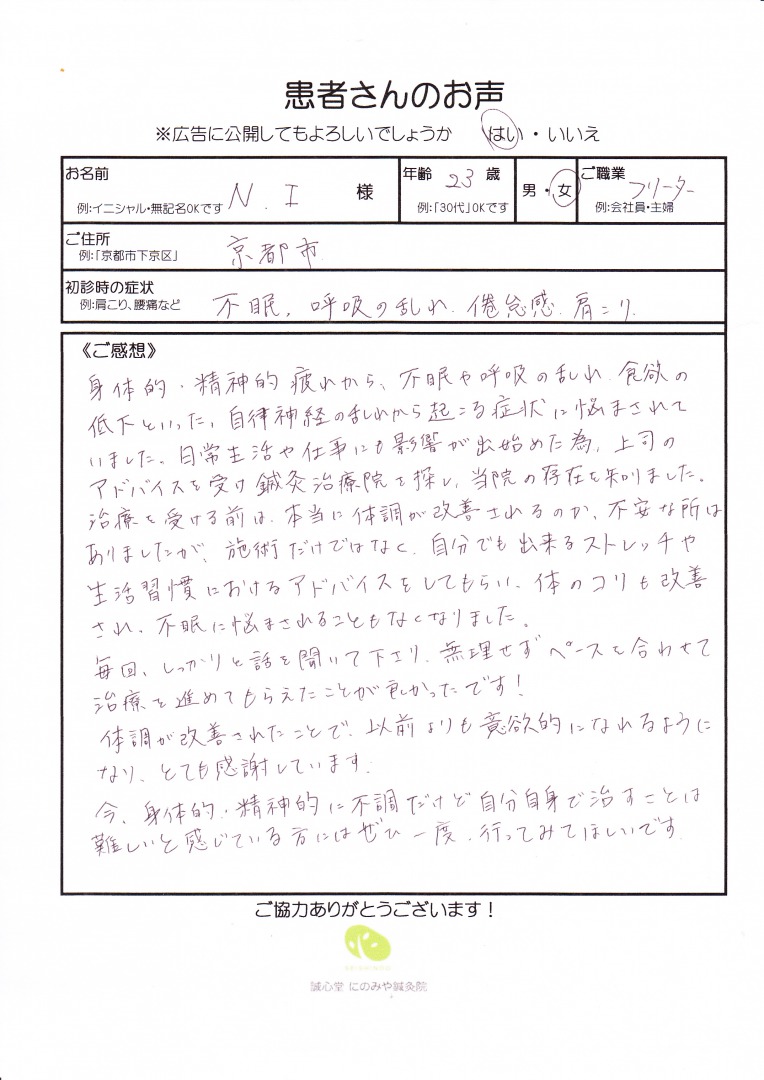 患者さんのお声
※広告に公開してもよろしいでしょうか はい・いいえ
お名前 N. I 様
例:イニシャル・無記名OKです
年齢 23 歳
例:「30代」OKです
男・女
ご職業 フリーター
例:会社員・主婦
ご住所 京都市
例:「京都市下京区」
初診時の症状 不眠、呼吸の乱れ、倦怠感、肩こり
例:肩こり、腰痛など
《ご感想》
身体的・精神的疲れから、不眠や呼吸の乱れ、食欲の
低下といった、自律神経の乱れから起こる症状に悩まされて
いました。日常生活や仕事にも影響が出始めた為、上司の
アドバイスを受け鍼灸治療院を探し、当院の存在を知りました。
治療を受ける前は、本当に体調が改善されるのか、不安な所は
ありましたが、施術だけではなく、自分でも出来るストレッチや
生活習慣におけるアドバイスをしてもらい、体のコリも改善
され、不眠に悩まされることもなくなりました。
毎回、しっかりと話を聞いて下さり、無理せずペースを合わせて
治療を進めてもらえたことが良かったです!
体調が改善されたことで、以前よりも意欲的になれるように
なり、とても感謝しています。
今、身体的・精神的に不調だけど自分自身で治すことは
難しいと感じている方にはぜひ一度、行ってみてほしいです
ご協力ありがとうございます!
誠心堂 にのみや鍼灸院